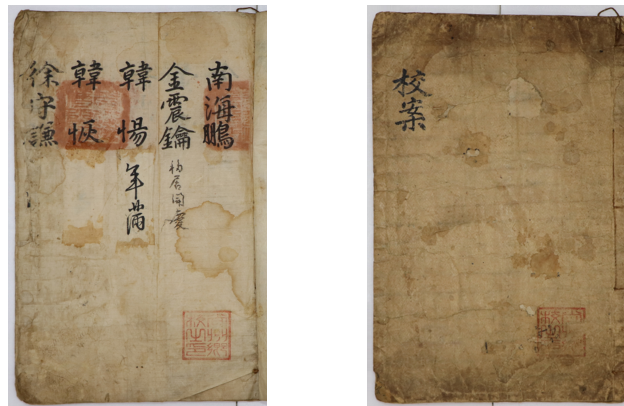 南海鵬
金震鑰 移居聞慶
韓惕 年滿
韓恢
徐守謙
校案